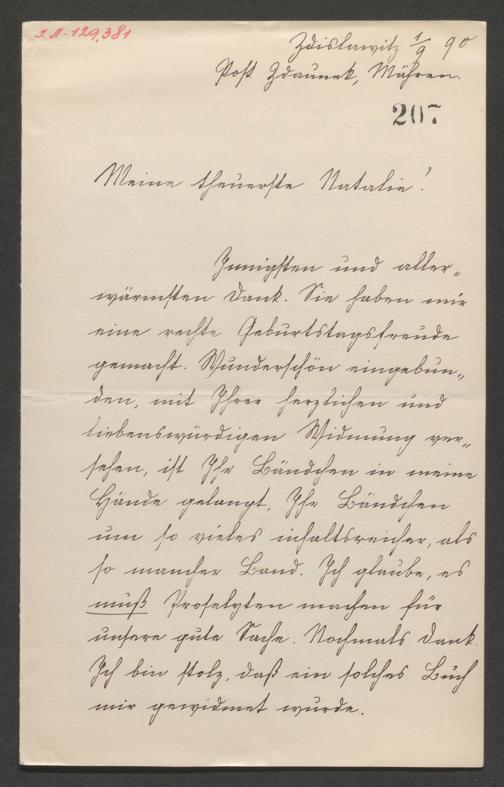 J.N. 129,381
Zdislawitz 1/9 90
Post Zdaunek, Mähren.
207
Meine theuerste Natalie!
Innigsten und aller„
wärmsten Dank. Sie haben mir
eine rechte Geburtstagsfreude
gemacht. Wunderschön eingebun„
den, mit Ihrer herzlichen und
liebenswürdigen Widmung ver„
sehen, ist Ihr Bändchen in meine
Hände gelangt, Ihr Bändchen
um so vieles inhaltsreicher, als
so mancher Band. Ich glaube, es
muß Proselyten machen für
unsere gute Sache. Nochmals Dank.
Ich bin stolz, daß ein solches Buch
mir gewidmet wurde.